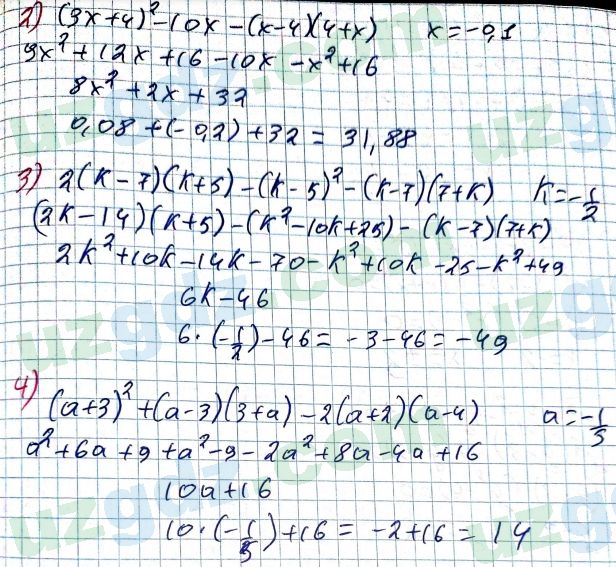 2) (3x+4)² - 10x - (x-4)(4+x) x = -0,1
9x² + 12x + 16 - 10x - x² + 16
8x² + 2x + 32
0,08 + (-0,2) + 32 = 31,88
3) 2(k-7)(k+5) - (k-5)² - (k-7)(7+k) k = -1/2
(2k-14)(k+5) - (k² - 10k + 25) - (k-7)(7+k)
2k² + 10k - 14k - 70 - k² + 10k - 25 - k² + 49
6k - 46
6·(-1/2) - 46 = -3 - 46 = -49
4) (a+3)² + (a-3)(3+a) - 2(a+2)(a-4) a = -1/5
a² + 6a + 9 + a² - 9 - 2a² + 8a - 4a + 16
10a + 16
10·(-1/5) + 16 = -2 + 16 = 14
uzgdz.com